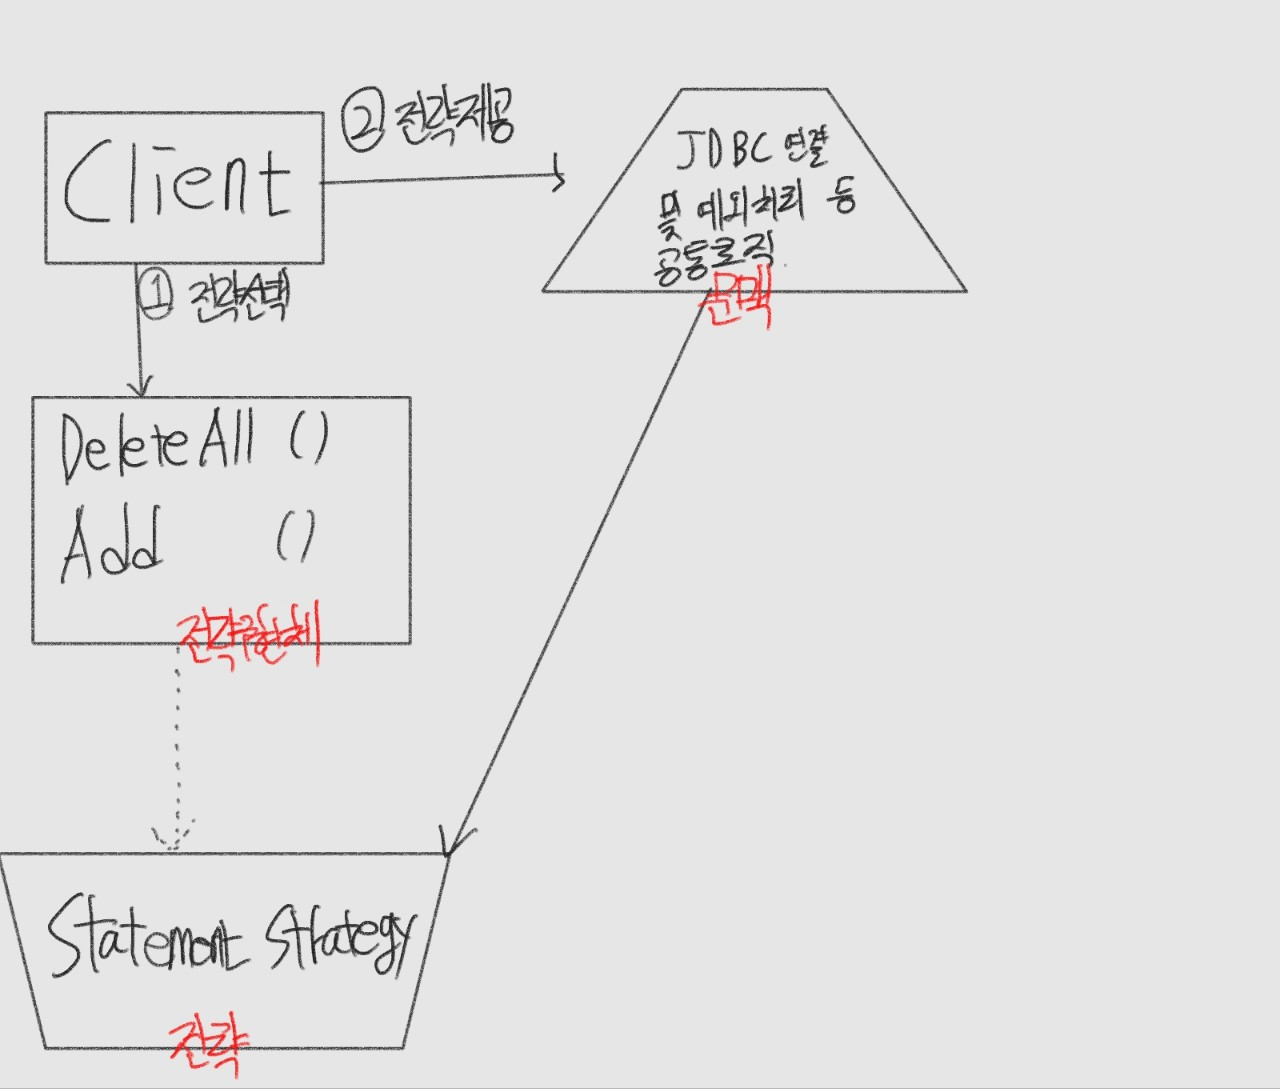 Client
② 전략제공
JDBC 연결
및 예외처리 등
공통로직
문맥
① 전략선택
DeleteAll ()
Add ()
전략구현단체
Statement Strategy
전략